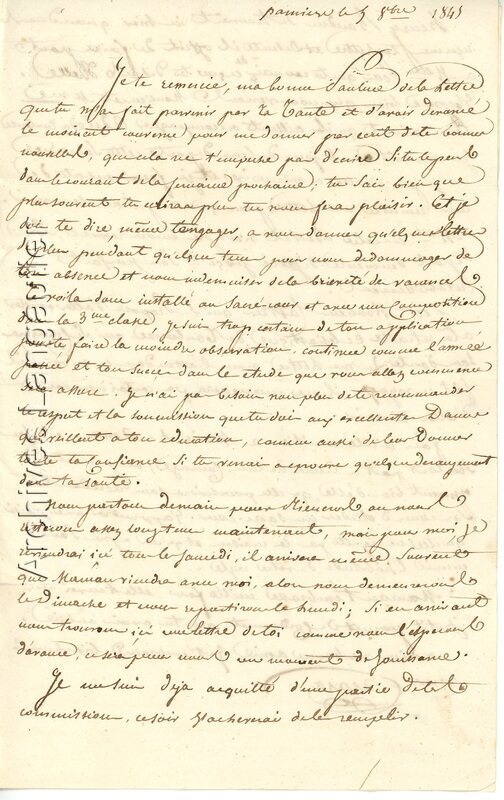 le 5 8bre 1845
Je te remercie, ma bonne Pauline de la lettre
que tu m'a fait parvenir par la Tante et d'avoir devancé
le moment convenu pour me donner par écrit de te bonne
nouvelles, que cela ne t'empeche pas d'écrire Si tu le peux
dans le courant de la semaine prochaine; tu sais bien que
plus souvent tu écriras plus tu nous fera plaisir. Et je
dois te dire, même t'engager, a nous donner quelques lettre
de plus pendant quelque tems pour nous dedommager de
ton absence et nous indemniser de la brieveté de vacances
Te voila donc installé au Sacré-cœur et avec une Composition
de la 3me classe, je suis trop certain de ton application
pour te faire la moindre observation. continue comme l'année
passée et ton succès dans le etude que vous allez commencer
sera assuré. Je n'ai pas besoin non plus de te recommander
le respect et la soumission que tu dois aux excellentes Dames
qui veillent a ton education, comme aussi de leur Donner
toute ta Confiance Si tu venais a eprouver quelque derangement
dans ta Santé.
Nous partons demain pour ou nous
assez longtems maintenant, mais pour moi je
reviendrai ici tous le Samedi, il arrivera même Souvent
que Maman viendra avec moi, alors nous demeurerons
le Dimanche et nous repartirons le lundi; Si en arrivant
nous trouvons ici une lettre de toi comme nous l'esperons
d'avance, ce sera pour nous un moment de Jouissance.
Je me suis deja acquitté d'une partie de tes
commission, ce soir j'acheverai de les remplir.
Archives Langagières